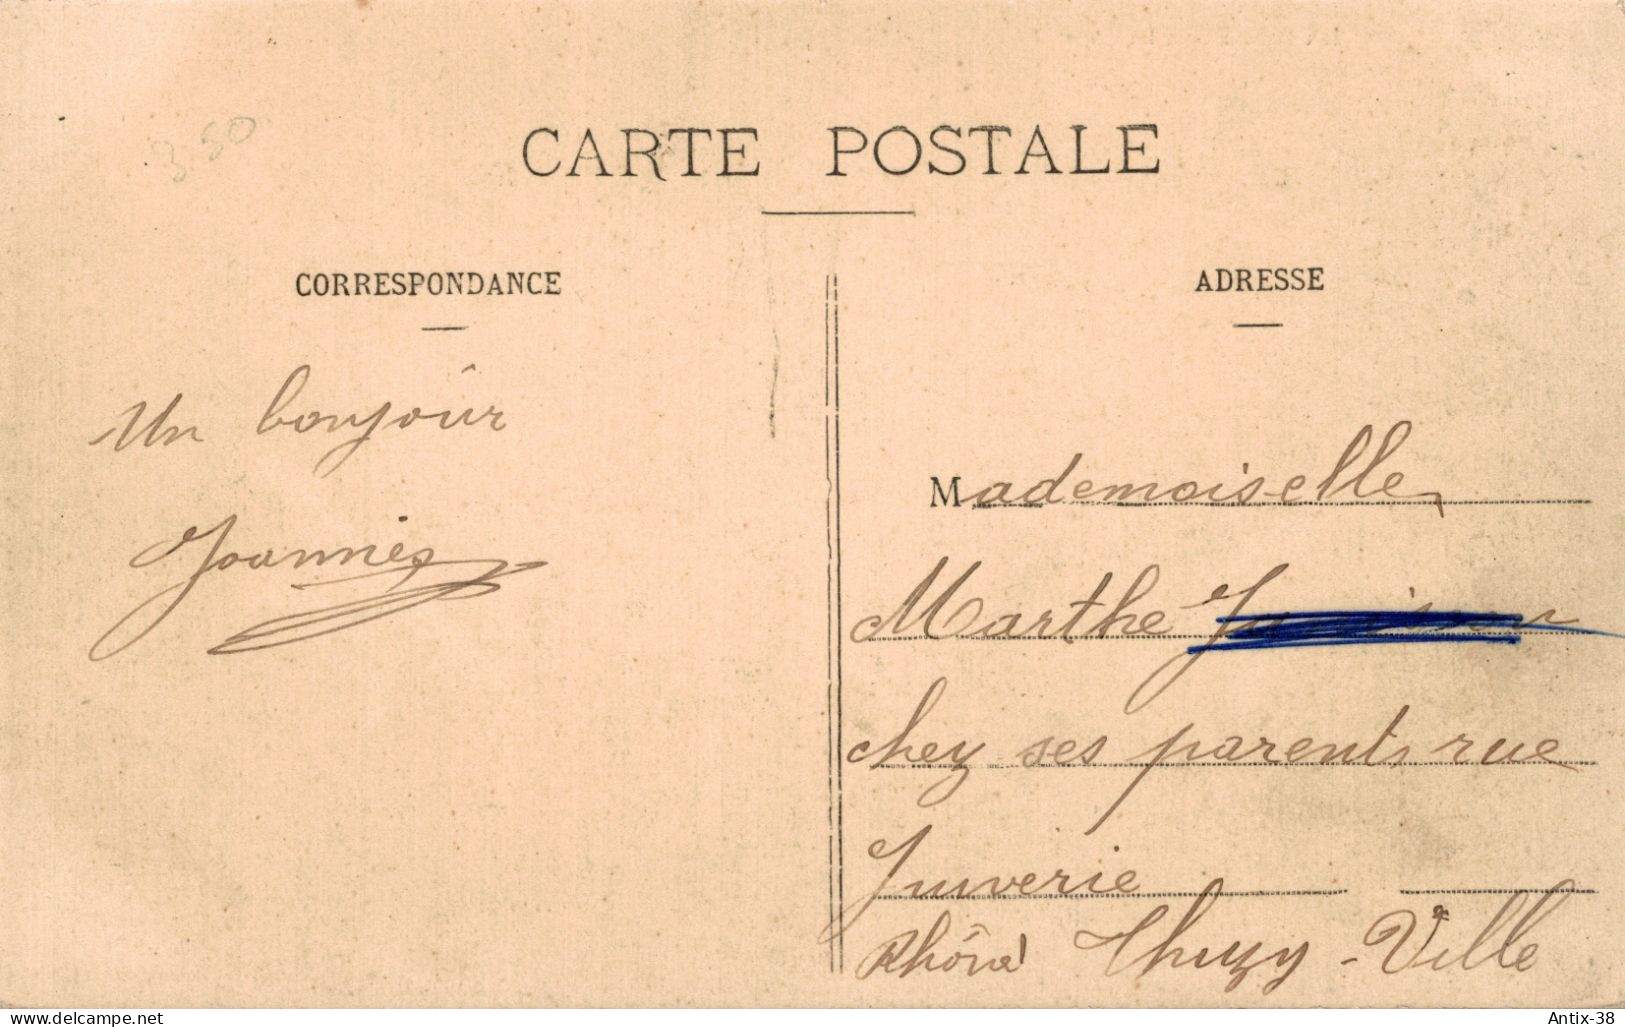 3.50
CARTE POSTALE
CORRESPONDANCE
Un bonjour
Joannès
ADRESSE
Mademoiselle
Marthe
chez ses parents rue
Juiverie
Rhône Thizy-Ville
www.delcampe.net
Antix-38